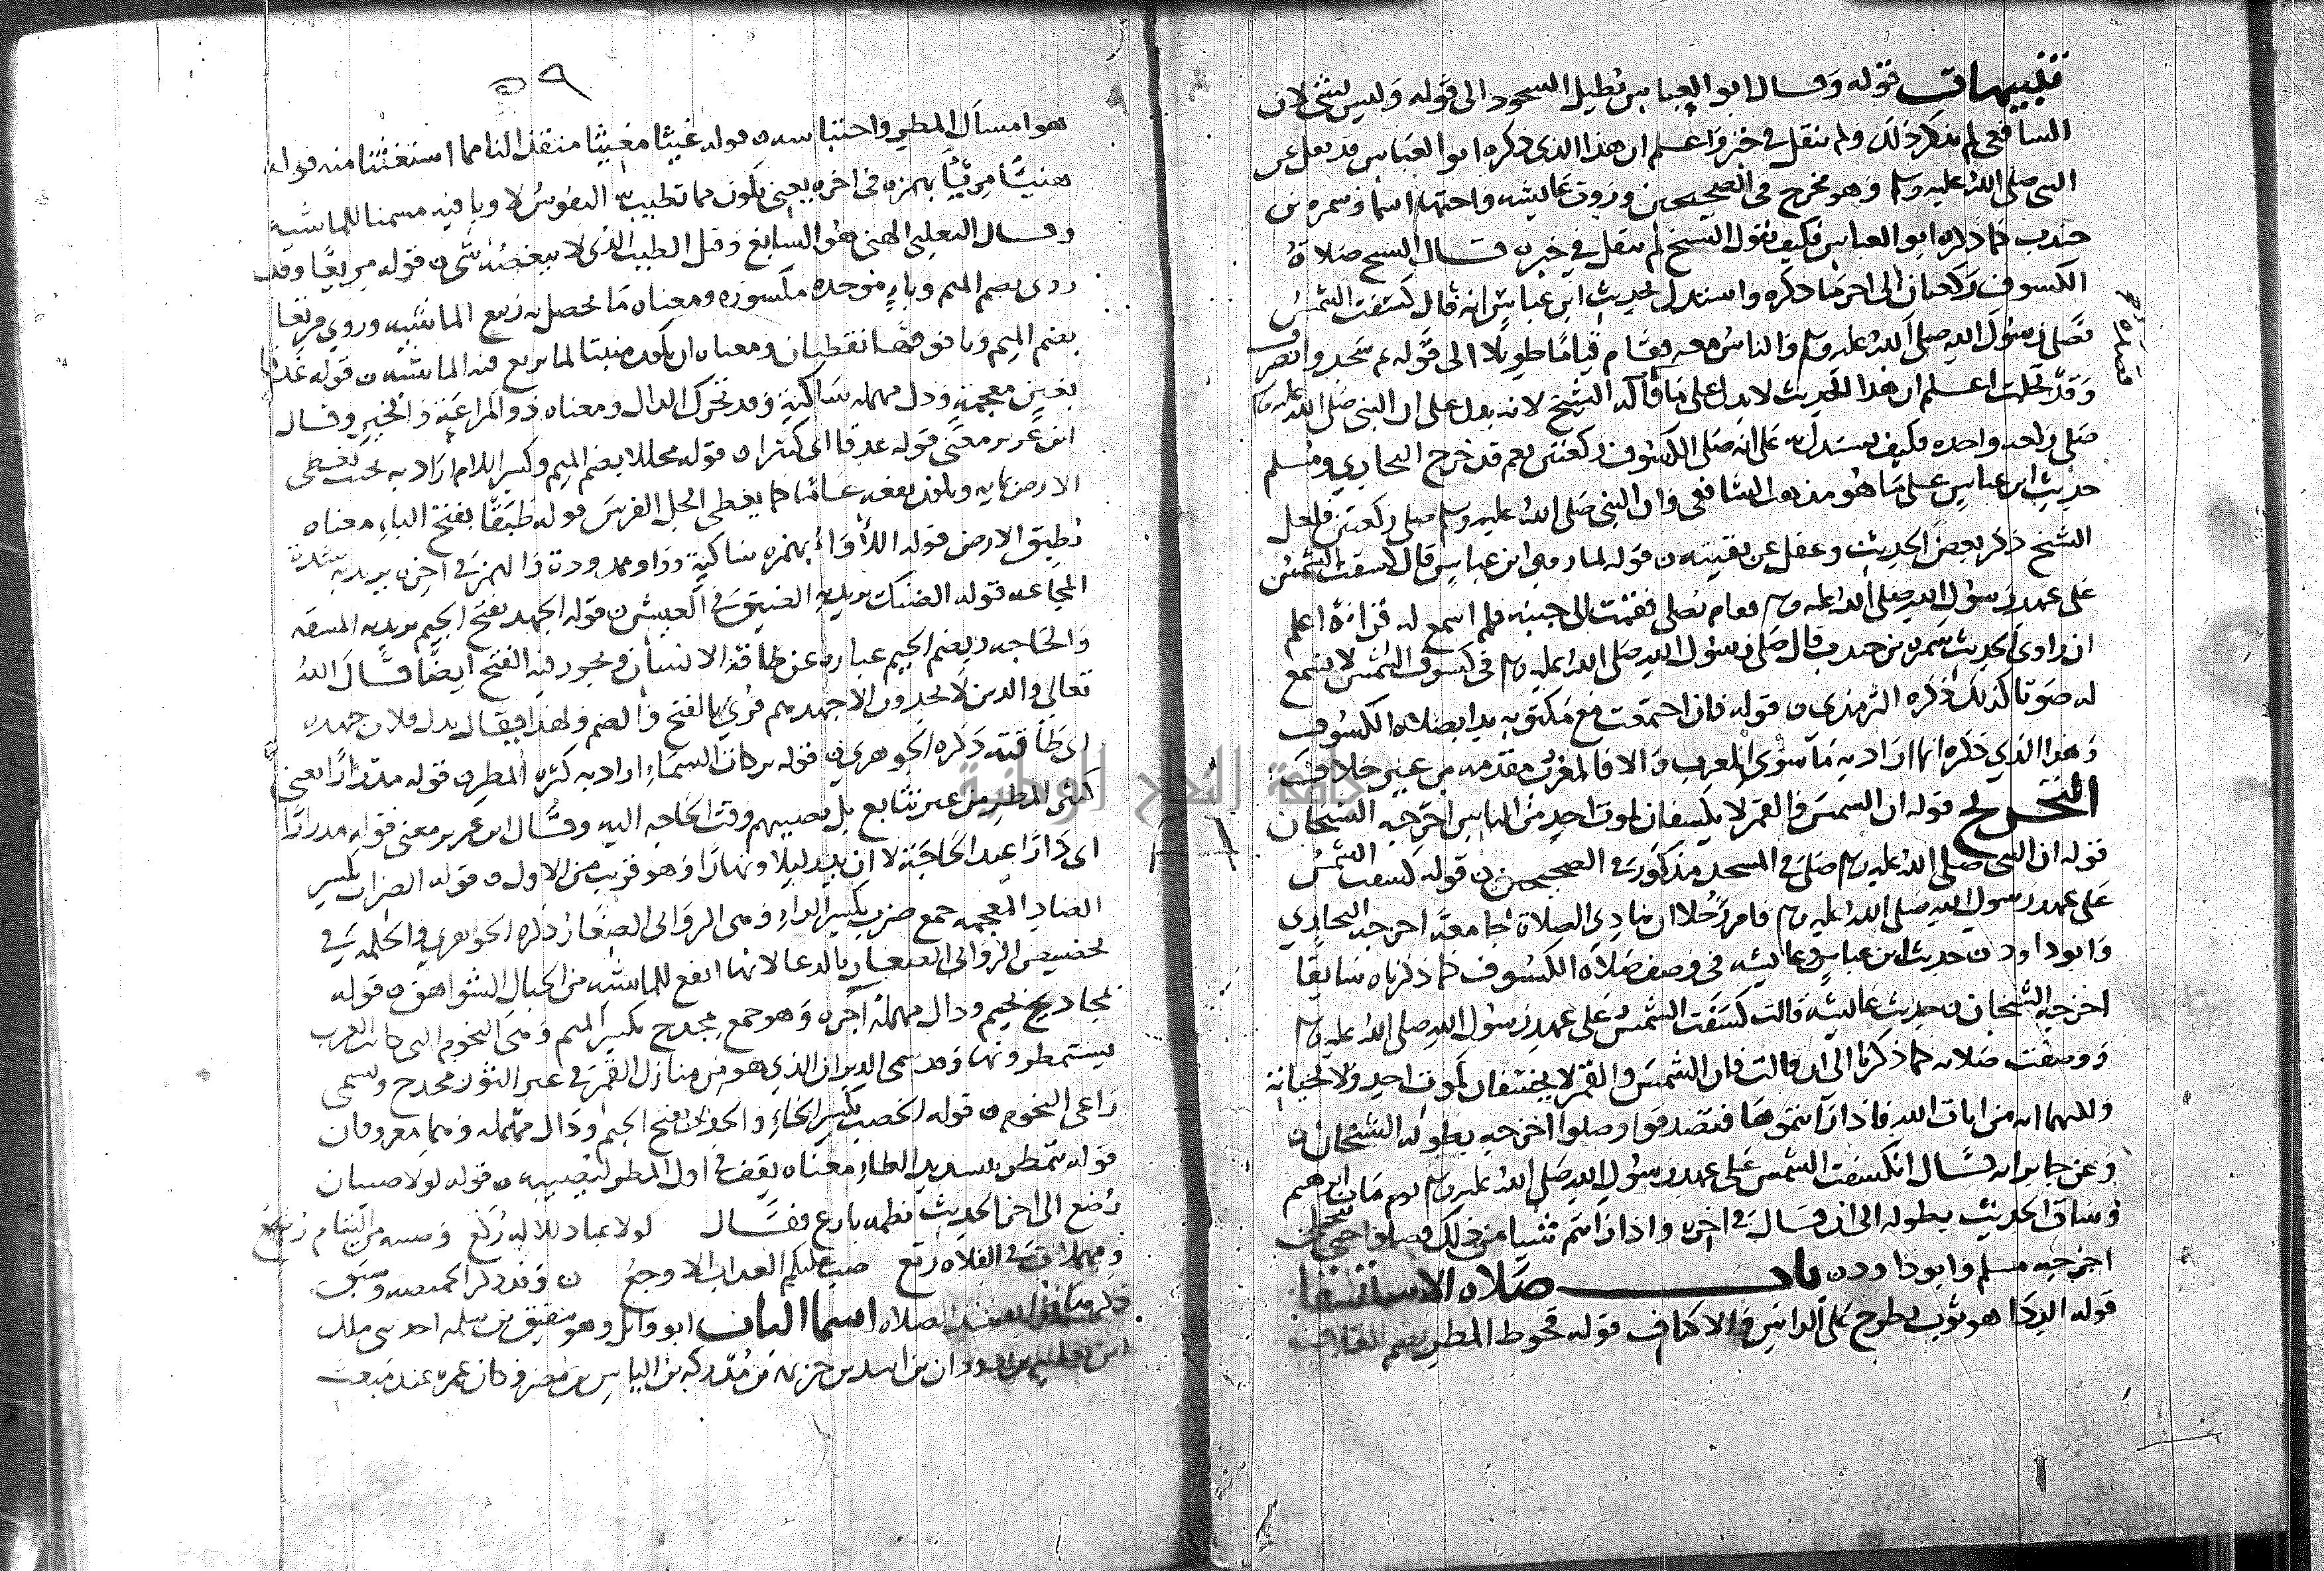 تنبيهات قوله وقال ابو العباس تطيل السجود الى قوله وليس بشى لان
الشافعى لم يذكر ذلك ولم ينقل في خبر واعلم ان هذا الذى ذكره ابو العباس قد نقل عن
النبى صلى الله عليه وسلم وهو مخرج فى الصحيحين وروت عايشه واختها اسما وسمره بن
جندب كما ذكره ابو العباس فكيف يقول الشيخ لم ينقل في خبر ن قال الشيخ صلاة
الكسوف ركعتان الى اخر ما ذكره واستدل بحديث ابن عباس انه قال كسفت الشمس
فصلى رسول الله صلى الله عليه وسلم والناس معه فقام قياما طويلا الى قوله ثم سجد وانصرف
وقد تجلت اعلم ان هذا الحديث لا يدل على ما قاله الشيخ لانه يدل على ان النبى صلى الله عليه وسلم
صلى ركعه واحده فكيف يستدل به على انه صلى الكسوف ركعتين نعم قد خرج البخاري ومسلم
حديث ابن عباس على ما هو مذهب الشافعى وان النبى صلى الله عليه وسلم صلى ركعتين فلعل
الشيخ ذكر بعض الحديث وغفل عن بقيته ن قوله لما روى ابن عباس قال كسفت الشمس
على عهد رسول الله صلى الله عليه وسلم فقام يصلى فقمت الى جنبه فلم اسمع له قراءة اعلم
ان راوى الحديث سمره بن جندب قال صلى رسول الله صلى الله عليه وسلم فى كسوف الشمس لا نسمع
له صوتا كذلك ذكره الترمذى ن قوله فان اجتمعت مع مكتوبه بدا بصلاه الكسوف
وهذا الذي ذكره انما اراد به ما سوى المغرب والا فالمغرب مقدمه من غير خلاف
التخريج قوله ان الشمس والقمر لا يكسفان لموت احد من الناس اخرجه الشيخان
قوله ان النبى صلى الله عليه وسلم صلى في المسجد مذكور في الصحيحين ن قوله كسفت الشمس
على عهد رسول الله صلى الله عليه وسلم فامر رجلا ان ينادي الصلاة جامعة اخرجه البخاري
وابو داود ن حديث ابن عباس وعايشه فى وصف صلاه الكسوف كما ذكرناه سابقا
اخرجه الشيخان ن حديث عايشه قالت كسفت الشمس على عهد رسول الله صلى الله عليه وسلم
ووصفت صلاته كما ذكرنا الى ان قالت فان الشمس والقمر لا يخسفان لموت احد ولا لحياته
ولكنهما ايه من ايات الله فاذا رايتموها فتصدقوا وصلوا اخرجه بطوله الشيخان ن
وعن جابر انه قال انكسفت الشمس على عهد رسول الله صلى الله عليه وسلم يوم مات ابرهيم
وساق الحديث بطوله الى ان قال في اخره واذا رايتم شيا من ذلك فصلوا حتى تنجلى
اخرجه مسلم وابو داود ن باب صلاه الاستسقا
قوله الردا هو ثوب يطرح على الراس والاكتاف قوله قحوط المطر بضم القاف
٥٩
هو امساك المطر واحتباسه ن قوله غيثا مغيثا منقذا لنا مما استغثنا منه قوله
هنيئا مريئا بهمزه فى اخره يعنى يكون مما تطيب به النفوس لا وبا فيه مسمنا للماشيه
وقال الثعلبى الهنى هو السايغ وقيل الطيب الذى لا ينغصه شى ن قوله مريعا وقد
روى بضم الميم وباء موحده مكسوره ومعناه ما يحصل به ربيع الماشيه وروي مرتعا
بضم الميم وتا فوقها نقطتان ومعناه ان يكون منبتا لما يرتع فيه الماشيه ن قوله غدقا
بغين معجمة ودال مهمله ساكنة وقد تحرك الدال ومعناه ذو المراعة والخير وقال
ابن عزيز معنى قوله غدقا اى كثيرا ن قوله مجللا بضم الميم وكسر اللام اراد به بحيث يغطى
الارض بمايه ويكون نفعه عاما كما يغطى الجل الفرس قوله طبقا بفتح الباء معناه
تطبيق الارض قوله اللأواء بهمزه ساكنة وواو ممدودة والهمز في اخره يريد به شدة
المجاعه قوله الضنك يريد به الضيق في العيش ن قوله الجهد بفتح الجيم يريد به المشقه
والحاجه وبضم الجيم عباره عن طاقة الانسان ويجوز فيه الفتح ايضا قال الله
تعالى والذين لا يجدون الا جهدهم قرئ بالفتح والضم ولهذا يقال بذل فلان جهده
اى طاقته ذكره الجوهرى ن قوله بركات السماء اراد به كثره المطر ن قوله مدرارا يعنى
كثير المطر من غير تتابع بل يصيبهم وقت الحاجه اليه وقال ابن عزيز معنى قوله مدرارا
اى دارا عند الحاجة لا ان يدر ليلا ونهارا وهو قريب من الاول ن قوله الضراب بكسر
الضاد المعجمه جمع ضرب بكسر الراء وهى الروابى الصغار ذكره الجوهرى والحكمه في
تخصيص الروابى الصغار بالدعا لانها انفع للماشيه من الجبال الشواهق ن قوله
بمجاديح بجيم ودال مهملة اخره وهو جمع مجدح بكسر الميم وهى النجوم التى كانت العرب
يستمطرونها وقد سمى الدبران الذي هو من منازل القمر في عين الثور مجدح ويسمى
راعى النجوم ن قوله الخصب بكسر الخاء والجدب بفتح الجيم ودال مهمله وهما معروفان
قوله يتمطر بتشديد الطاء معناه يقف في اول المطر ليصيبه ن قوله لولا صبيان
رضع الى اخر الحديث نظمه بارع فقال لولا عباد للاله ركع وصبيه من اليتام رضع
ومهملات في الفلاه رتع صب عليكم العذاب الاوجع ن
اسما الباب ابو وائل وهو شقيق بن سلمه احد بنى ملك
ابن ثعلبه بن دودان بن اسد بن خزيمه بن مدركه بن الياس بن مضر وكان عمره عند مبعث
جامعة النجاح الوطنية